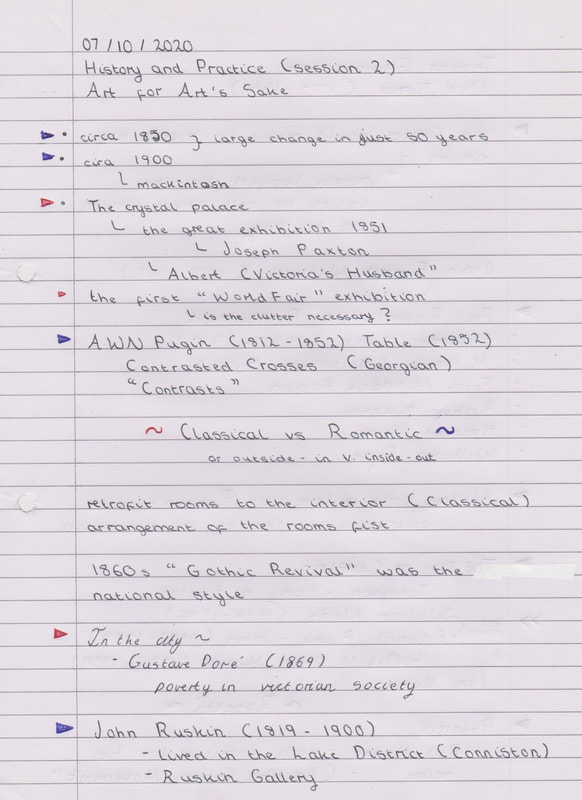 07/10/2020
History and Practice (session 2)
Art for Art's Sake
• circa 1850 } large change in just 50 years
• cira 1900
└ mackintosh
• The crystal palace
└ the great exhibition 1851
└ Joseph Paxton
└ Albert (Victoria's Husband"
the first "World Fair" exhibition
└ is the clutter necessary?
AWN Pugin (1812 - 1852) Table (1852)
Contrasted Crosses (Georgian)
"Contrasts"
~ Classical vs Romantic ~
or outside - in v. inside - out
retrofit rooms to the interior (Classical)
arrangement of the rooms fist
1860s "Gothic Revival" was the
national style
In the city ~
- Gustave Doré (1869)
poverty in victorian society
John Ruskin (1819 - 1900)
- Lived in the Lake District (Conniston)
- Ruskin Gallery